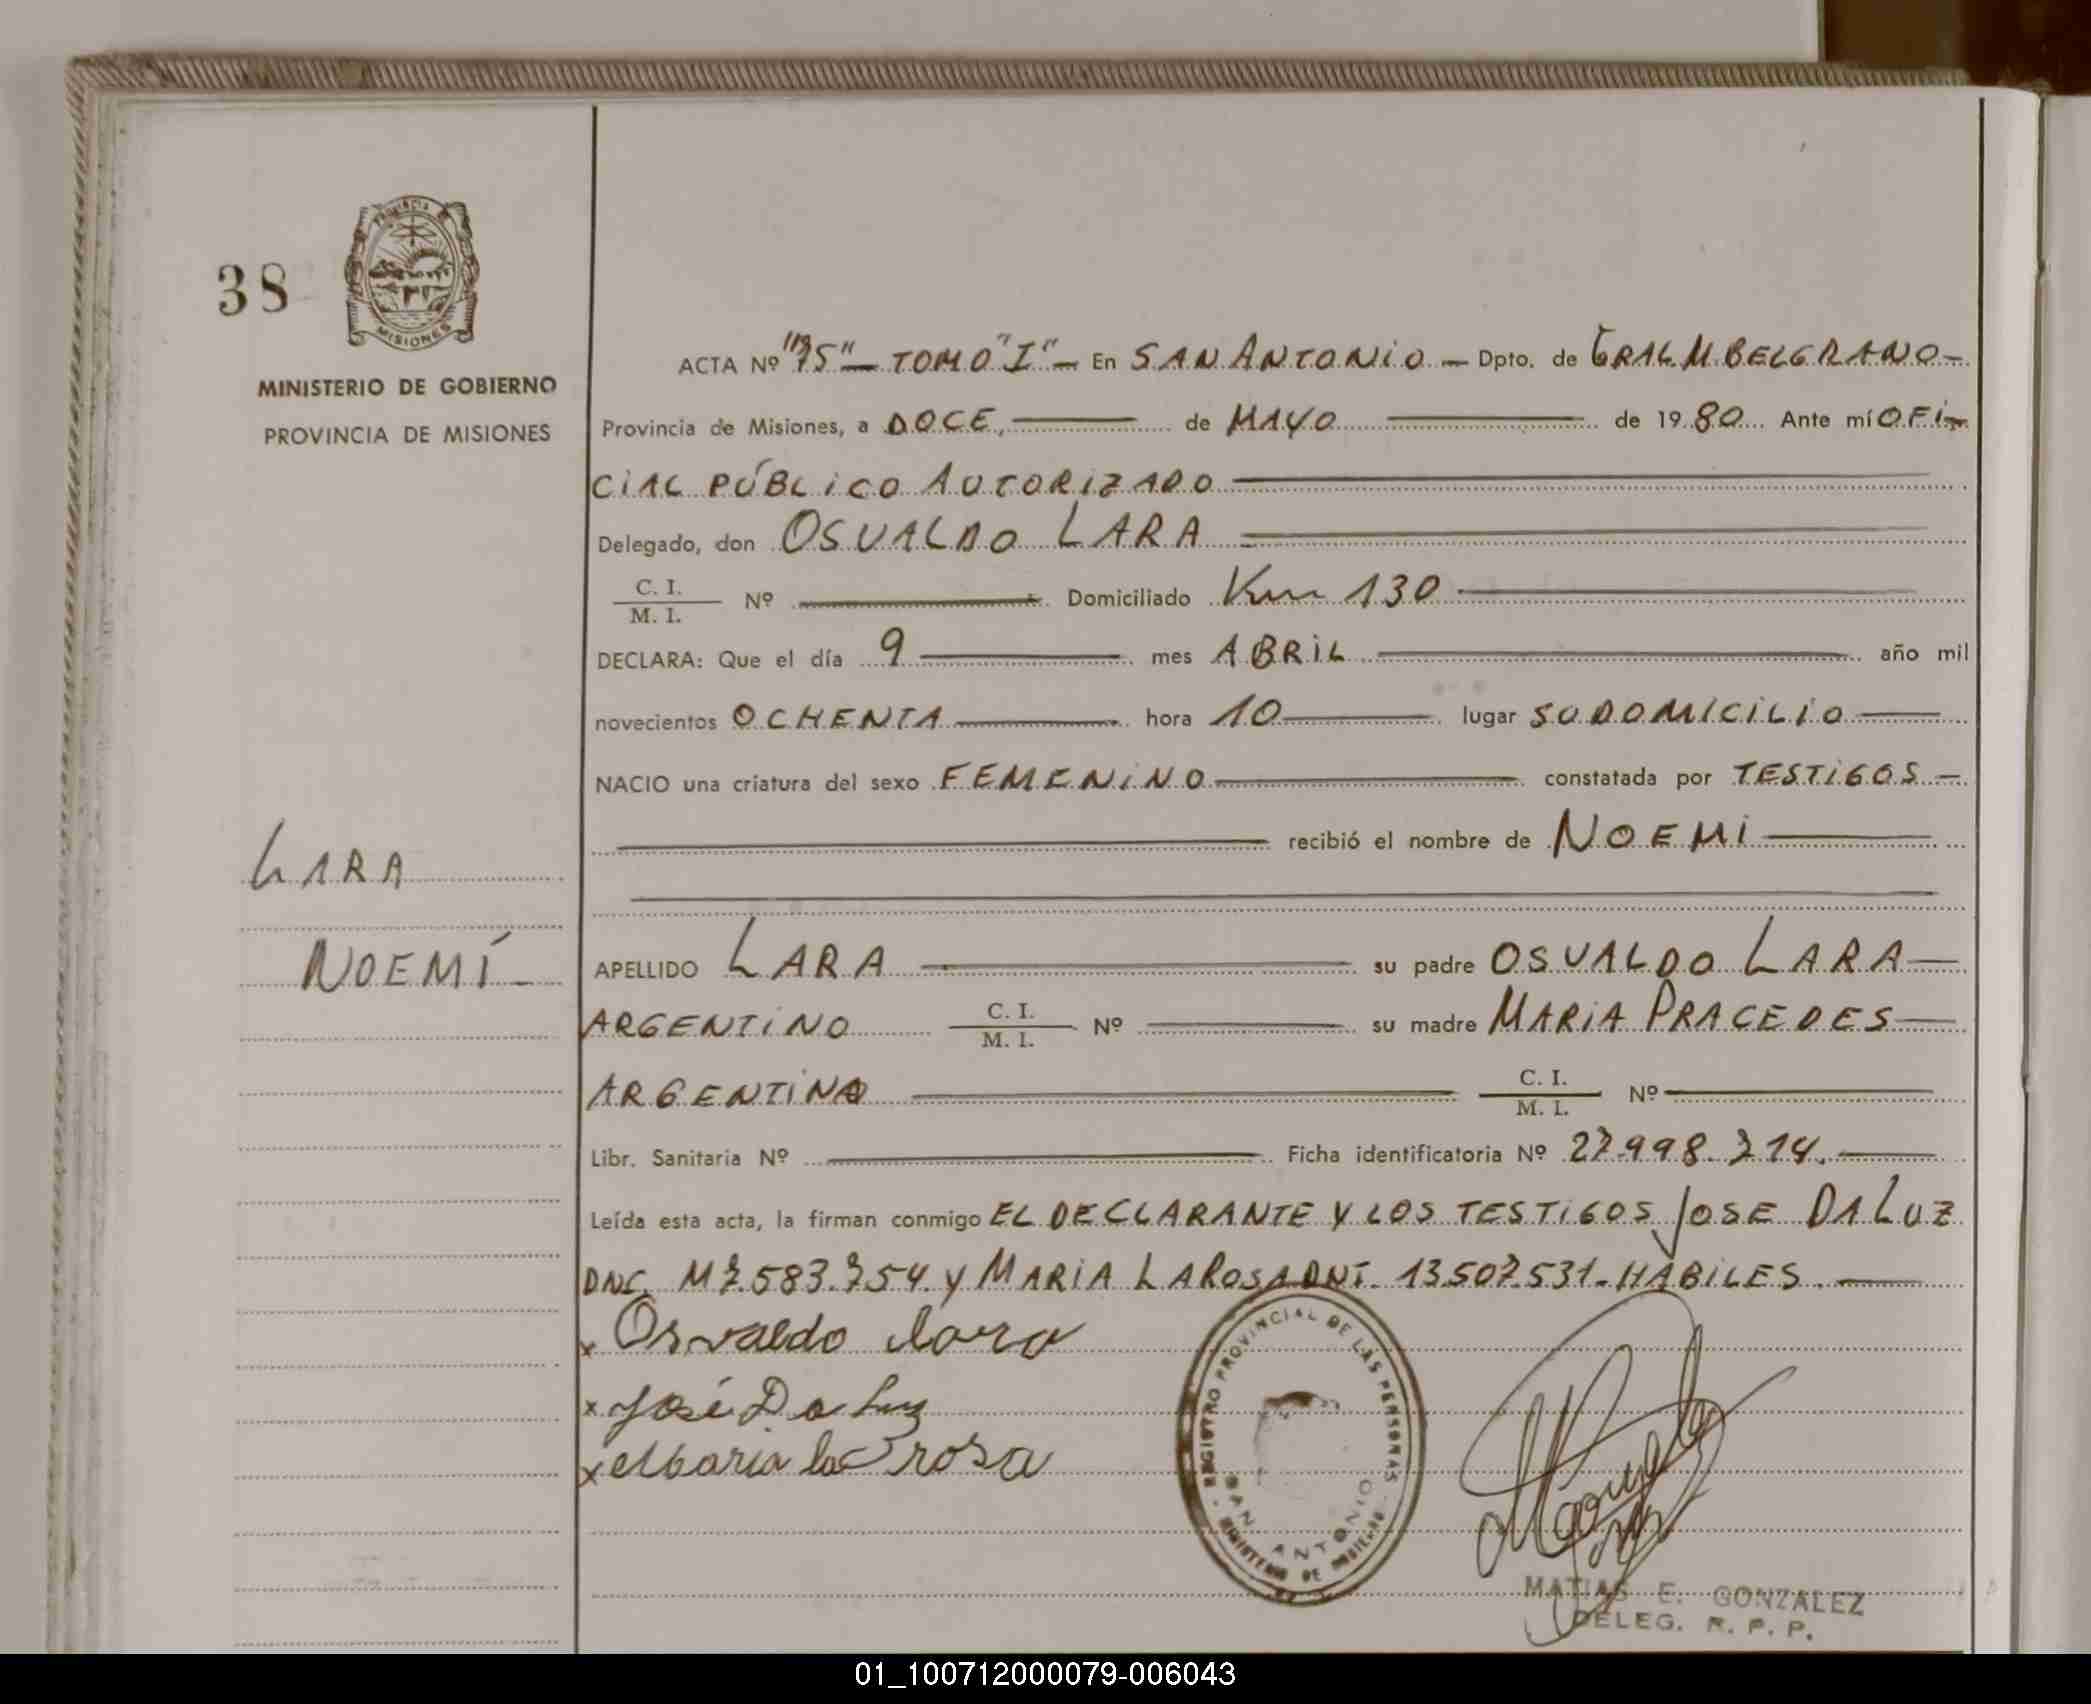 38
PROVINCIA DE
MISIONES
MINISTERIO DE GOBIERNO
PROVINCIA DE MISIONES
LARA
NOEMÍ -
ACTA Nº "75" - TOMO "I" - En SAN ANTONIO - Dpto. de GRAL M. BELGRANO -
Provincia de Misiones, a DOCE, de MAYO de 1980 Ante mí OFI-
CIAL PÚBLICO AUTORIZADO
Delegado, don OSVALDO LARA
C. I.
M. I. Nº Domiciliado Km 130
DECLARA: Que el día 9 mes ABRIL año mil
novecientos OCHENTA hora 10 lugar SU DOMICILIO
NACIO una criatura del sexo FEMENINO constatada por TESTIGOS -
recibió el nombre de NOEMI
APELLIDO LARA su padre OSVALDO LARA
ARGENTINO C. I. M. I. Nº su madre MARIA PRACEDES
ARGENTINA C. I. M. I. Nº
Libr. Sanitaria Nº Ficha identificatoria Nº 27.998.714.
Leída esta acta, la firman conmigo EL DECLARANTE Y LOS TESTIGOS JOSE DA LUZ
DNI. M7.583.754. Y MARIA LA ROSA DNI. 13.507.531- HÁBILES.
x Osvaldo Lara
x José Da Luz
x Maria la rosa
REGISTRO PROVINCIAL DE LAS PERSONAS
SAN ANTONIO
MINISTERIO DE GOBIERNO
MATIAS E. GONZALEZ
DELEG. R. P. P.
01_100712000079-006043